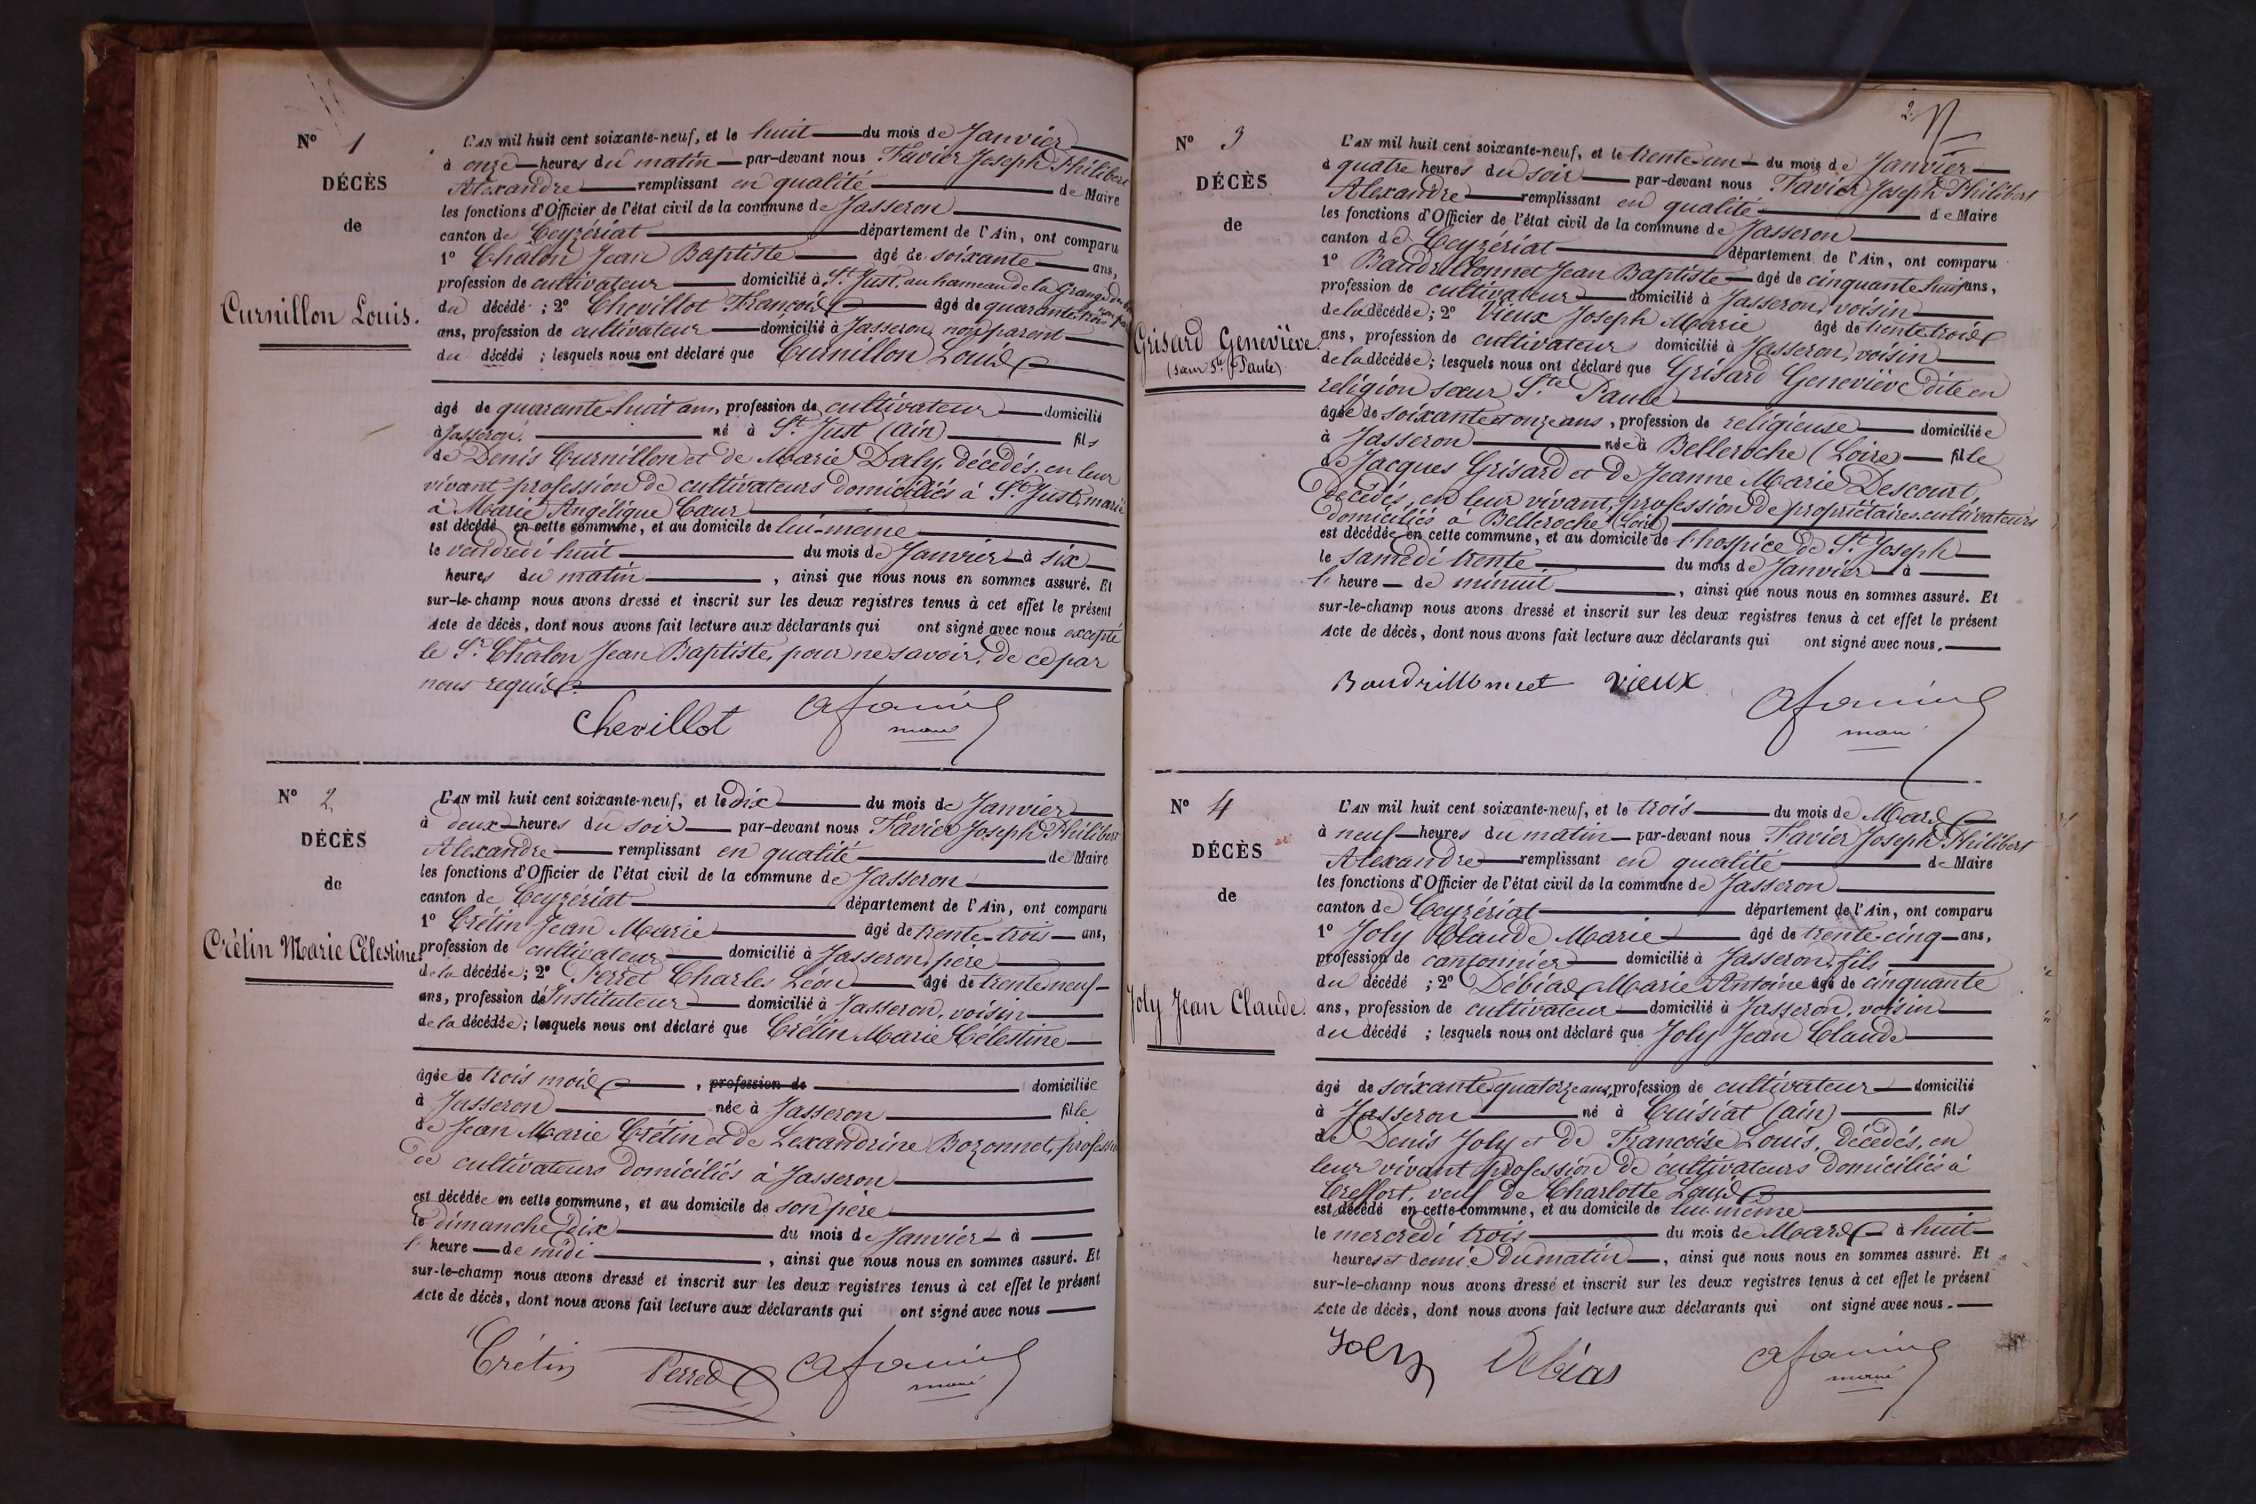 Nº 1
DÉCÈS
de
Curnillon Louis.
L'AN mil huit cent soixante-neuf, et le huit du mois de Janvier
à onze heures du matin par-devant nous Favier Joseph Philibert
Alexandre remplissant en qualité de Maire
les fonctions d'Officier de l'état civil de la commune de Jasseron
canton de Ceyzériat département de l'Ain, ont comparu
1º Chalon Jean Baptiste âgé de soixante ans,
profession de cultivateur domicilié à St Just, au hameau de la Grange
du décédé ; 2º Chevillot François âgé de quarante trois
ans, profession de cultivateur domicilié à Jasseron non parent
du décédé ; lesquels nous ont déclaré que Curnillon Louis
âgé de quarante-huit ans, profession de cultivateur domicilié
à Jasseron. né à St Just (ain) fils
de Denis Curnillon et de Marie Daly, décédés, en leur
vivant profession de cultivateurs domiciliés à St Just, marié
à Marie Angélique Cœur
est décédé en cette commune, et au domicile de lui-même
le vendredi huit du mois de Janvier à six
heures du matin , ainsi que nous nous en sommes assuré. Et
sur-le-champ nous avons dressé et inscrit sur les deux registres tenus à cet effet le présent
Acte de décès, dont nous avons fait lecture aux déclarants qui ont signé avec nous excepté
le Sr Chalon Jean Baptiste, pour ne savoir, de ce par
nous requis.
Chevillot afavier
maire
Nº 2
DÉCÈS
de
Crétin Marie Célestine
L'AN mil huit cent soixante-neuf, et le dix du mois de Janvier
à deux heures du soir par-devant nous Favier Joseph Philibert
Alexandre remplissant en qualité de Maire
les fonctions d'Officier de l'état civil de la commune de Jasseron
canton de Ceyzériat département de l'Ain, ont comparu
1º Crétin Jean Marie âgé de trente-trois ans,
profession de cultivateur domicilié à Jasseron, père
de la décédée ; 2º Perret Charles Léon âgé de trente neuf
ans, profession d'Instituteur domicilié à Jasseron, voisin
de la décédée ; lesquels nous ont déclaré que Crétin Marie Célestine
âgée de trois mois , profession de domiciliée
à Jasseron née à Jasseron fille
de Jean Marie Crétin et de Lexandrine Bozonnet, profession
de cultivateurs domiciliés à Jasseron
est décédée en cette commune, et au domicile de son père
le dimanche dix du mois de Janvier à
l' heure de midi , ainsi que nous nous en sommes assuré. Et
sur-le-champ nous avons dressé et inscrit sur les deux registres tenus à cet effet le présent
Acte de décès, dont nous avons fait lecture aux déclarants qui ont signé avec nous
Crétin Perret afavier
maire
2
Nº 3
DÉCÈS
de
Grisard Geneviève.
(sœur Ste Paule)
L'AN mil huit cent soixante-neuf, et le trente-un du mois de Janvier
à quatre heures du soir par-devant nous Favier Joseph Philibert
Alexandre remplissant en qualité de Maire
les fonctions d'Officier de l'état civil de la commune de Jasseron
canton de Ceyzériat département de l'Ain, ont comparu
1º Baudrillonnet Jean Baptiste âgé de cinquante huit ans,
profession de cultivateur domicilié à Jasseron, voisin
de la décédée ; 2º Vieux Joseph Marie âgé de trente trois
ans, profession de cultivateur domicilié à Jasseron, voisin
de la décédée ; lesquels nous ont déclaré que Grisard Geneviève dite en
religion sœur Ste Paule
âgée de soixante et onze ans , profession de religieuse domiciliée
à Jasseron née à Belleroche (Loire) fille
de Jacques Grisard et de Jeanne Marie Descourt,
décédés, en leur vivant, profession de propriétaires cultivateurs
domiciliés à Belleroche (Loire)
est décédée en cette commune, et au domicile de l'hospice de St Joseph
le samedi trente du mois de Janvier à
l' heure de minuit , ainsi que nous nous en sommes assuré. Et
sur-le-champ nous avons dressé et inscrit sur les deux registres tenus à cet effet le présent
Acte de décès, dont nous avons fait lecture aux déclarants qui ont signé avec nous.
Baudrillonnet vieux afavier
maire
Nº 4
DÉCÈS
de
Joly Jean Claude.
L'AN mil huit cent soixante-neuf, et le trois du mois de Mars
à neuf heures du matin par-devant nous Favier Joseph Philibert
Alexandre remplissant en qualité de Maire
les fonctions d'Officier de l'état civil de la commune de Jasseron
canton de Ceyzériat département de l'Ain, ont comparu
1º Joly Claude Marie âgé de trente-cinq ans,
profession de cantonnier domicilié à Jasseron, fils
du décédé ; 2º Débias Marie Antoine âgé de cinquante
ans, profession de cultivateur domicilié à Jasseron, voisin
du décédé ; lesquels nous ont déclaré que Joly Jean Claude
âgé de soixante quatorze ans, profession de cultivateur domicilié
à Jasseron né à Cuisiat (ain) fils
de Denis Joly et de Francoise Louis, décédés, en
leur vivant profession de cultivateurs domiciliés à
Treffort, veuf de Charlotte Louis
est décédé en cette commune, et au domicile de lui même
le mercredi trois du mois de Mars à huit
heures et demie du matin , ainsi que nous nous en sommes assuré. Et
sur-le-champ nous avons dressé et inscrit sur les deux registres tenus à cet effet le présent
Acte de décès, dont nous avons fait lecture aux déclarants qui ont signé avec nous.
Joly Debias afavier
maire